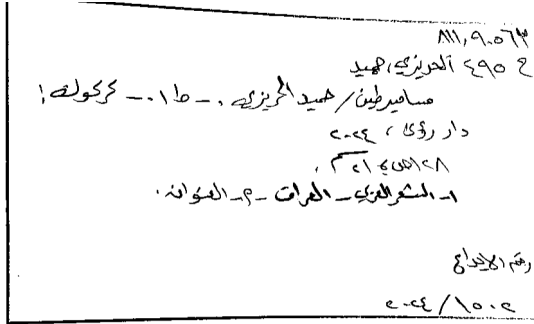 ٨١١,٩٠٥٦٣
ح ٤٩٥ الحريزي، حميد
مسامير طين / حميد الحريزي .- ط١ .- كركوك :
دار رؤى ، ٢٠٢٤
١٢٨ص ؛ ٢١سم .
١- الشعر العربي - العراق - م- العنوان .
رقم الايداع
١٥٠٢ / ٢٠٢٤